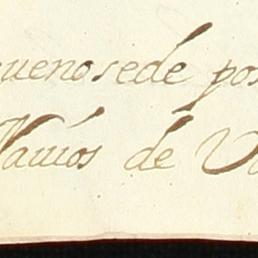 uenosedé pos
Navíos de V